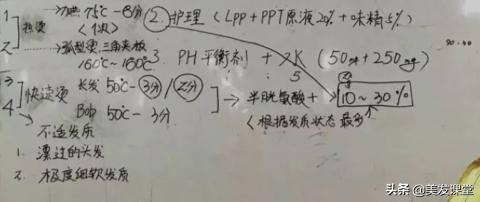 1 热烫 → 加热 75℃-8分
〈1次〉
2 → 弧型烫 三角夹板
160℃~180℃
②. 护理 (LPP+PPT原液20%+味精5%)
3. PH平衡剂 + 水 (50ml+250ml)
3 快速烫 长发 50℃-3分/2分
4 Bob 50℃-3分
→ 半胱氨酸+ 10~30%
〈根据发质状态 最多
不适发质
1. 漂过的头发
2. 极度细软发质
头条 @美发课堂